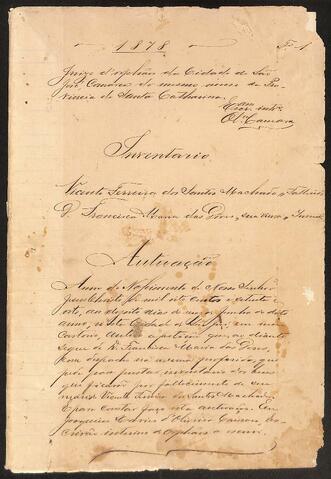 1878
F. 1
Juizo d'orphãos da Cidade de São
José, Comarca do mesmo nome da Pro-
vincia de Santa Catharina.
Escram intº
Olª Camara
Inventario
Vicente Ferreira dos Santos Machado, Fallecido
D. Francisca Maria das Dores, sua viuva, Invent
Autuação
Anno do Nascimento de Nosso Senhor
Jesus Christo de mil oito centos e setenta e
oito, aos dias do mez de Junho do dito
anno, n'esta Cidade de São José, em meu
Cartorio, autuo a petição que ao diante
segue de D. Francisca Maria das Dores,
com despacho na mesma proferido, que
para inventario dos bens
que ficarão por fallecimento de seu
marido Vicente Ferreira dos Santos Machado.
E para constar faço esta autuação. Eu
d'Oliveira Camara, Es-
crivão interino d'orphãos o escrevi.